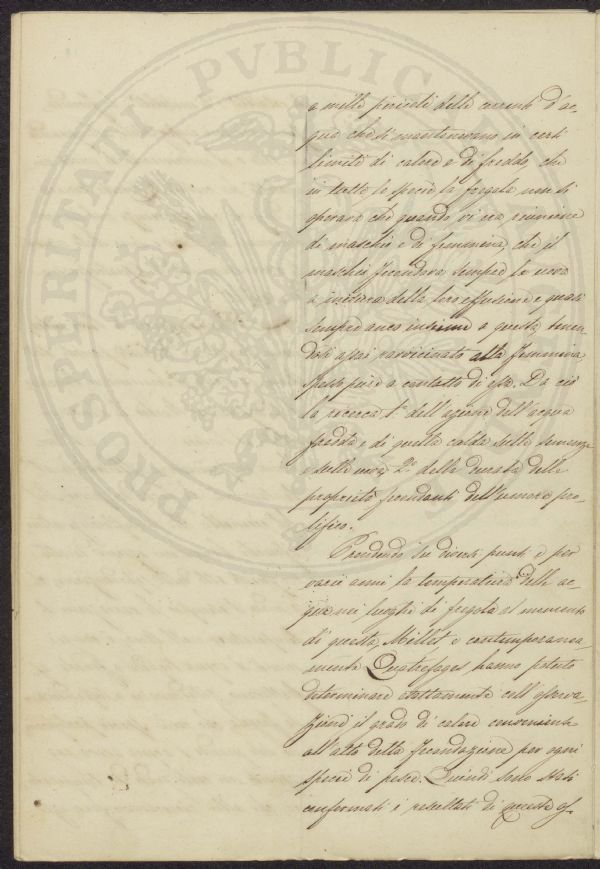 a mille pericoli delle correnti d'ac-
qua che si mantenevano in certi
limiti di calore e di freddo, che
in tutte le specie la fregola non si
operava che quando vi era riunione
di maschi e di femmine, che il
maschio fecondava sempre le uova
a misura della loro effusione e quasi
sempre anco insieme a questa, tenen-
dosi assai ravvicinato alla femmina
spesso pure a contatto di essa. Da ciò
la ricerca 1.° dell'azione dell'acqua
fredda e di quella calda sulle semenze
e sulle uova, 2.° della durata delle
proprietà fecondanti dell'umore pro-
lifico.
Prendendo su diversi punti e per
varii anni la temperatura delle ac-
que nei luoghi di fregola al momento
di questa, Millet e contemporanea-
mente Quatrefages hanno potuto
determinare esattamente coll'osserva-
zione il grado di calore conveniente
all'atto della fecondazione per ogni
specie di pesce. Quindi sono stati
confermati i resultati di queste os-
PROSPERITATI PVBLICAE